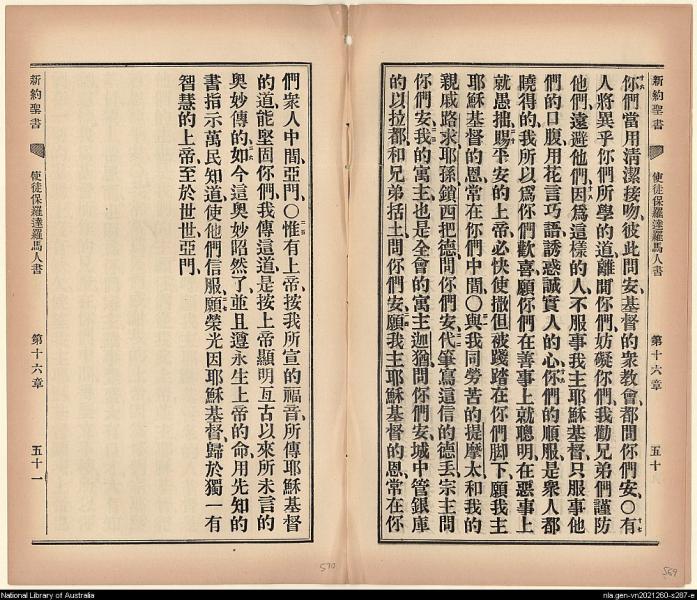 新約聖書 使徒保羅達羅馬人書 第十六章 五十
你們當用清潔接吻、彼此問安、基督的衆教會都問你們安、〇有
人將異乎你們所學的道、離間你們、妨礙你們、我勸兄弟們謹防
他們、遠避他們、因爲這樣的人、不服事我主耶穌基督、只服事他
們的口腹、用花言巧語、誘惑誠實人的心、你們的順服、是衆人都
曉得的、我所以爲你們歡喜、願你們在善事上就聰明、在惡事上
就愚拙、賜平安的上帝、必快使撒但被踐踏在你們脚下、願我主
耶穌基督的恩、常在你們中間、〇與我同勞苦的提摩太、和我的
親戚路求、耶孫、鎖西把德、問你們安、代筆寫這信的德丟、宗主問
你們安、我的寓主、也是全會的寓主迦猶、問你們安、城中管銀庫
的以拉都、和兄弟括土、問你們安、願我主耶穌基督的恩、常在你
新約聖書 使徒保羅達羅馬人書 第十六章 五十一
們衆人中間、亞門、〇惟有上帝、按我所宣的福音、所傳耶穌基督
的道、能堅固你們、我傳這道、是按上帝顯明亙古以來所未言的
奧妙傳的、如今這奧妙昭然了、並且遵永生上帝的命、用先知的
書、指示萬民知道、使他們信服、願榮光因耶穌基督、歸於獨一有
智慧的上帝、至於世世、亞門、
570
569
National Library of Australia
nla.gen-vn2021260-s287-e